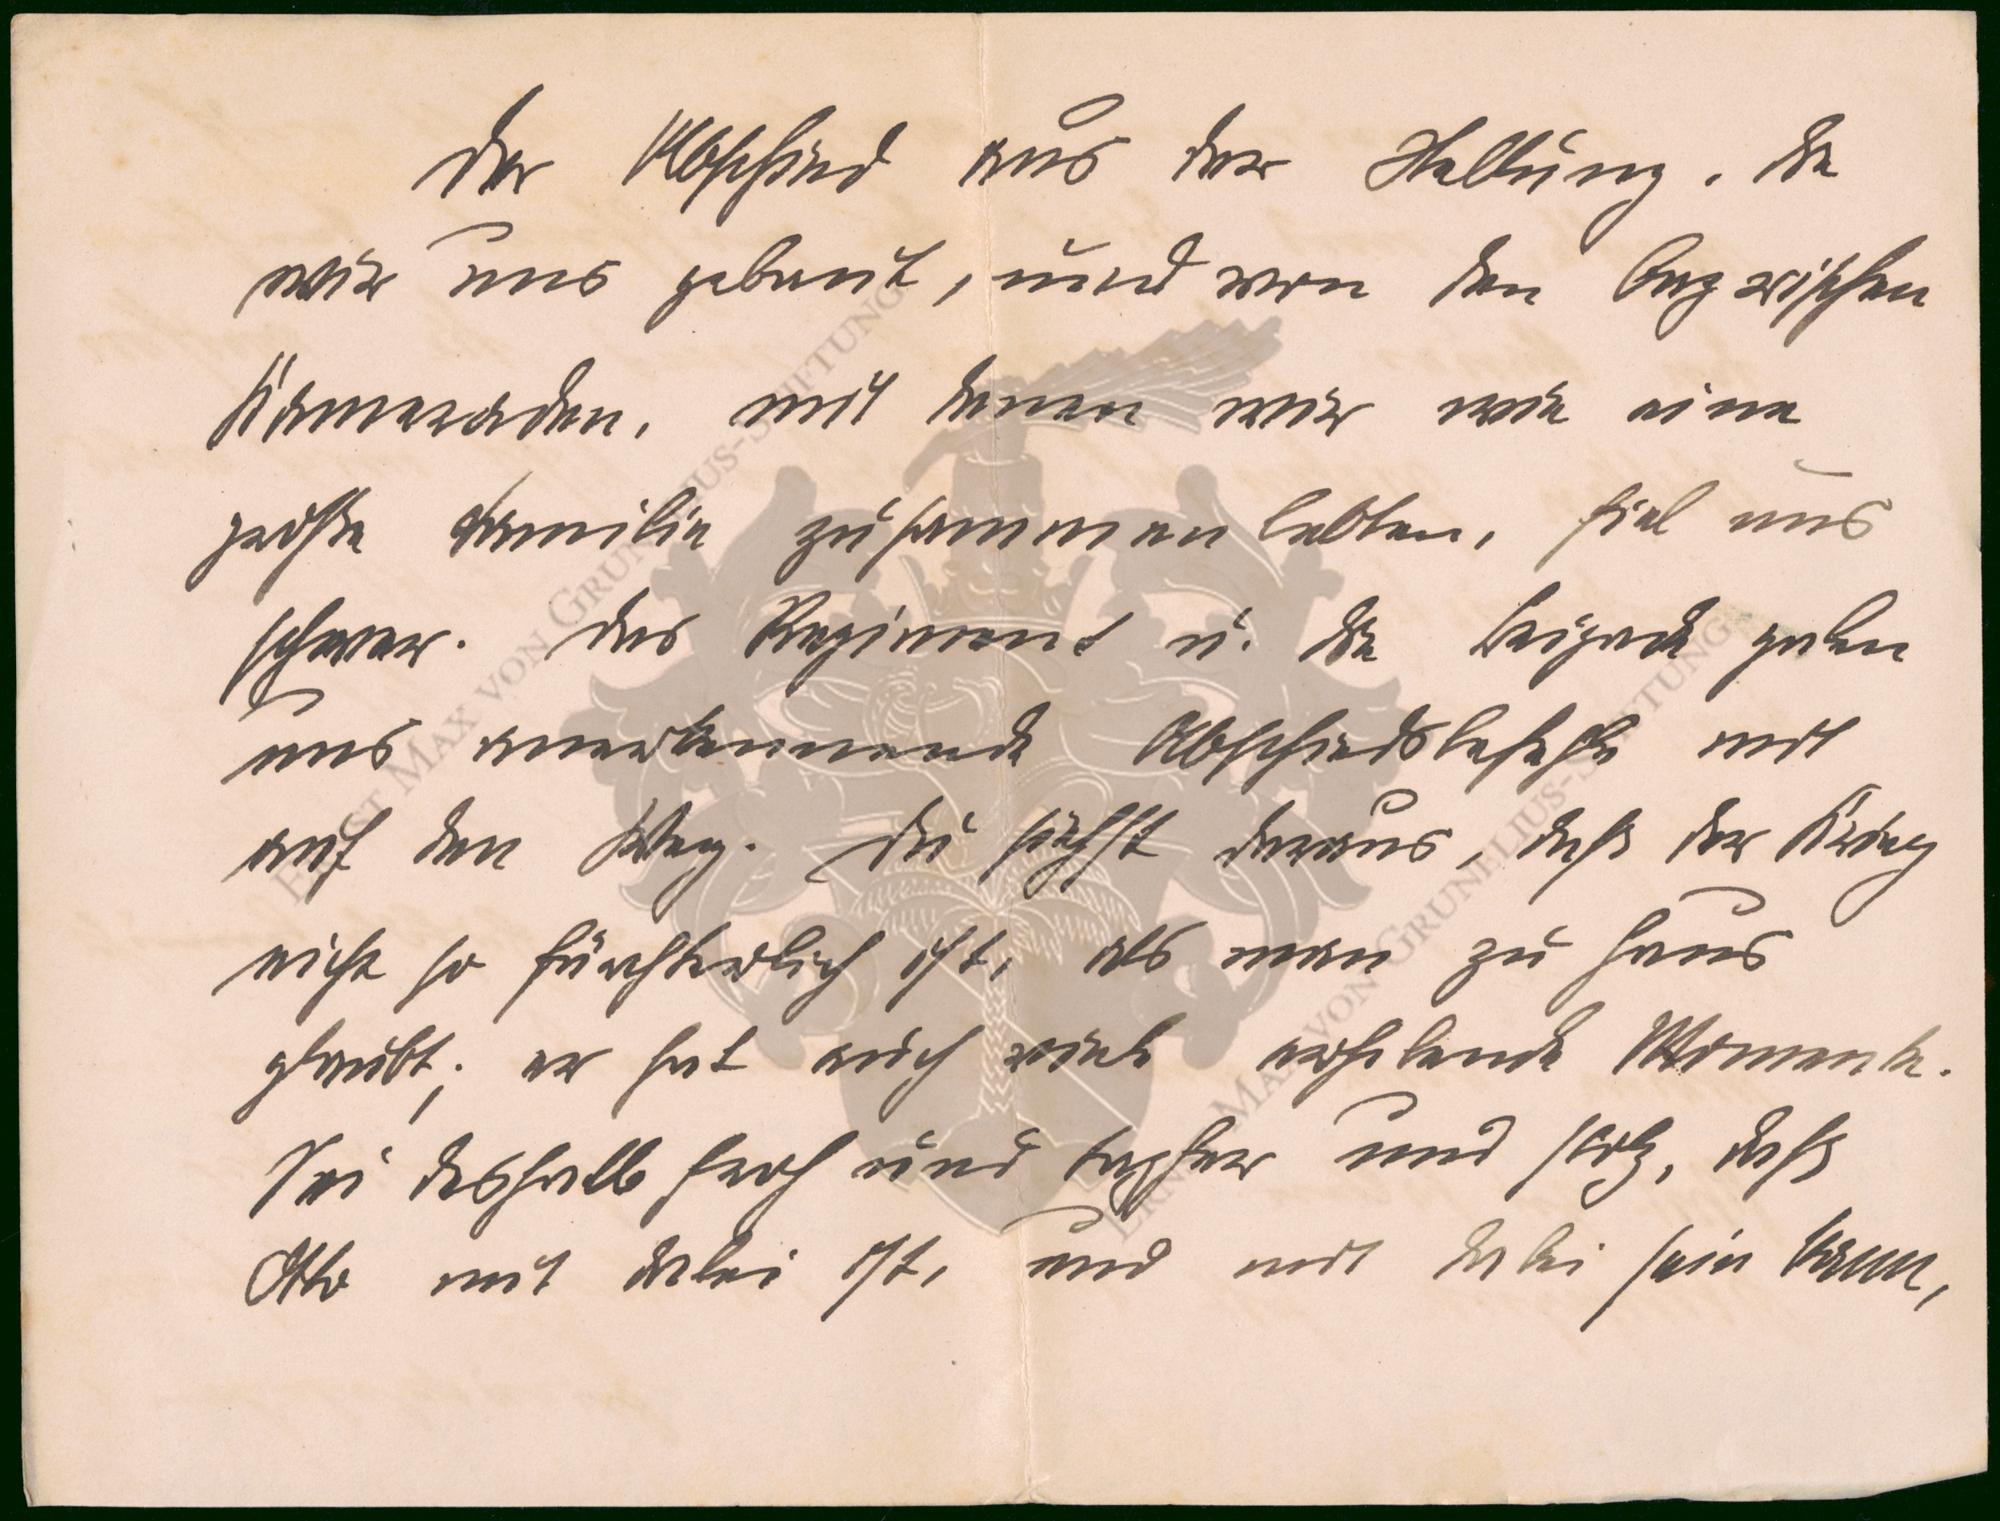 Der Abschied aus der Stellung, die
wir uns gebaut, und von den bayrischen
Kameraden, mit denen wir wie eine
große Familie zusammenlebten, fiel uns
schwer. Das Regiment u. die Brigade gaben
uns anerkennende Abschiedsbefehle mit
auf den Weg. Du siehst daraus, daß der Krieg
nicht so fürchterlich ist, als man zu Haus
glaubt; er hat auch viele erhebende Momente.
Sei deshalb froh und tapfer und stolz, daß
Otto mit dabei ist, und mit dabei sein kann,
Ernst Max von Grunelius-Stiftung
Ernst Max von Grunelius-Stiftung